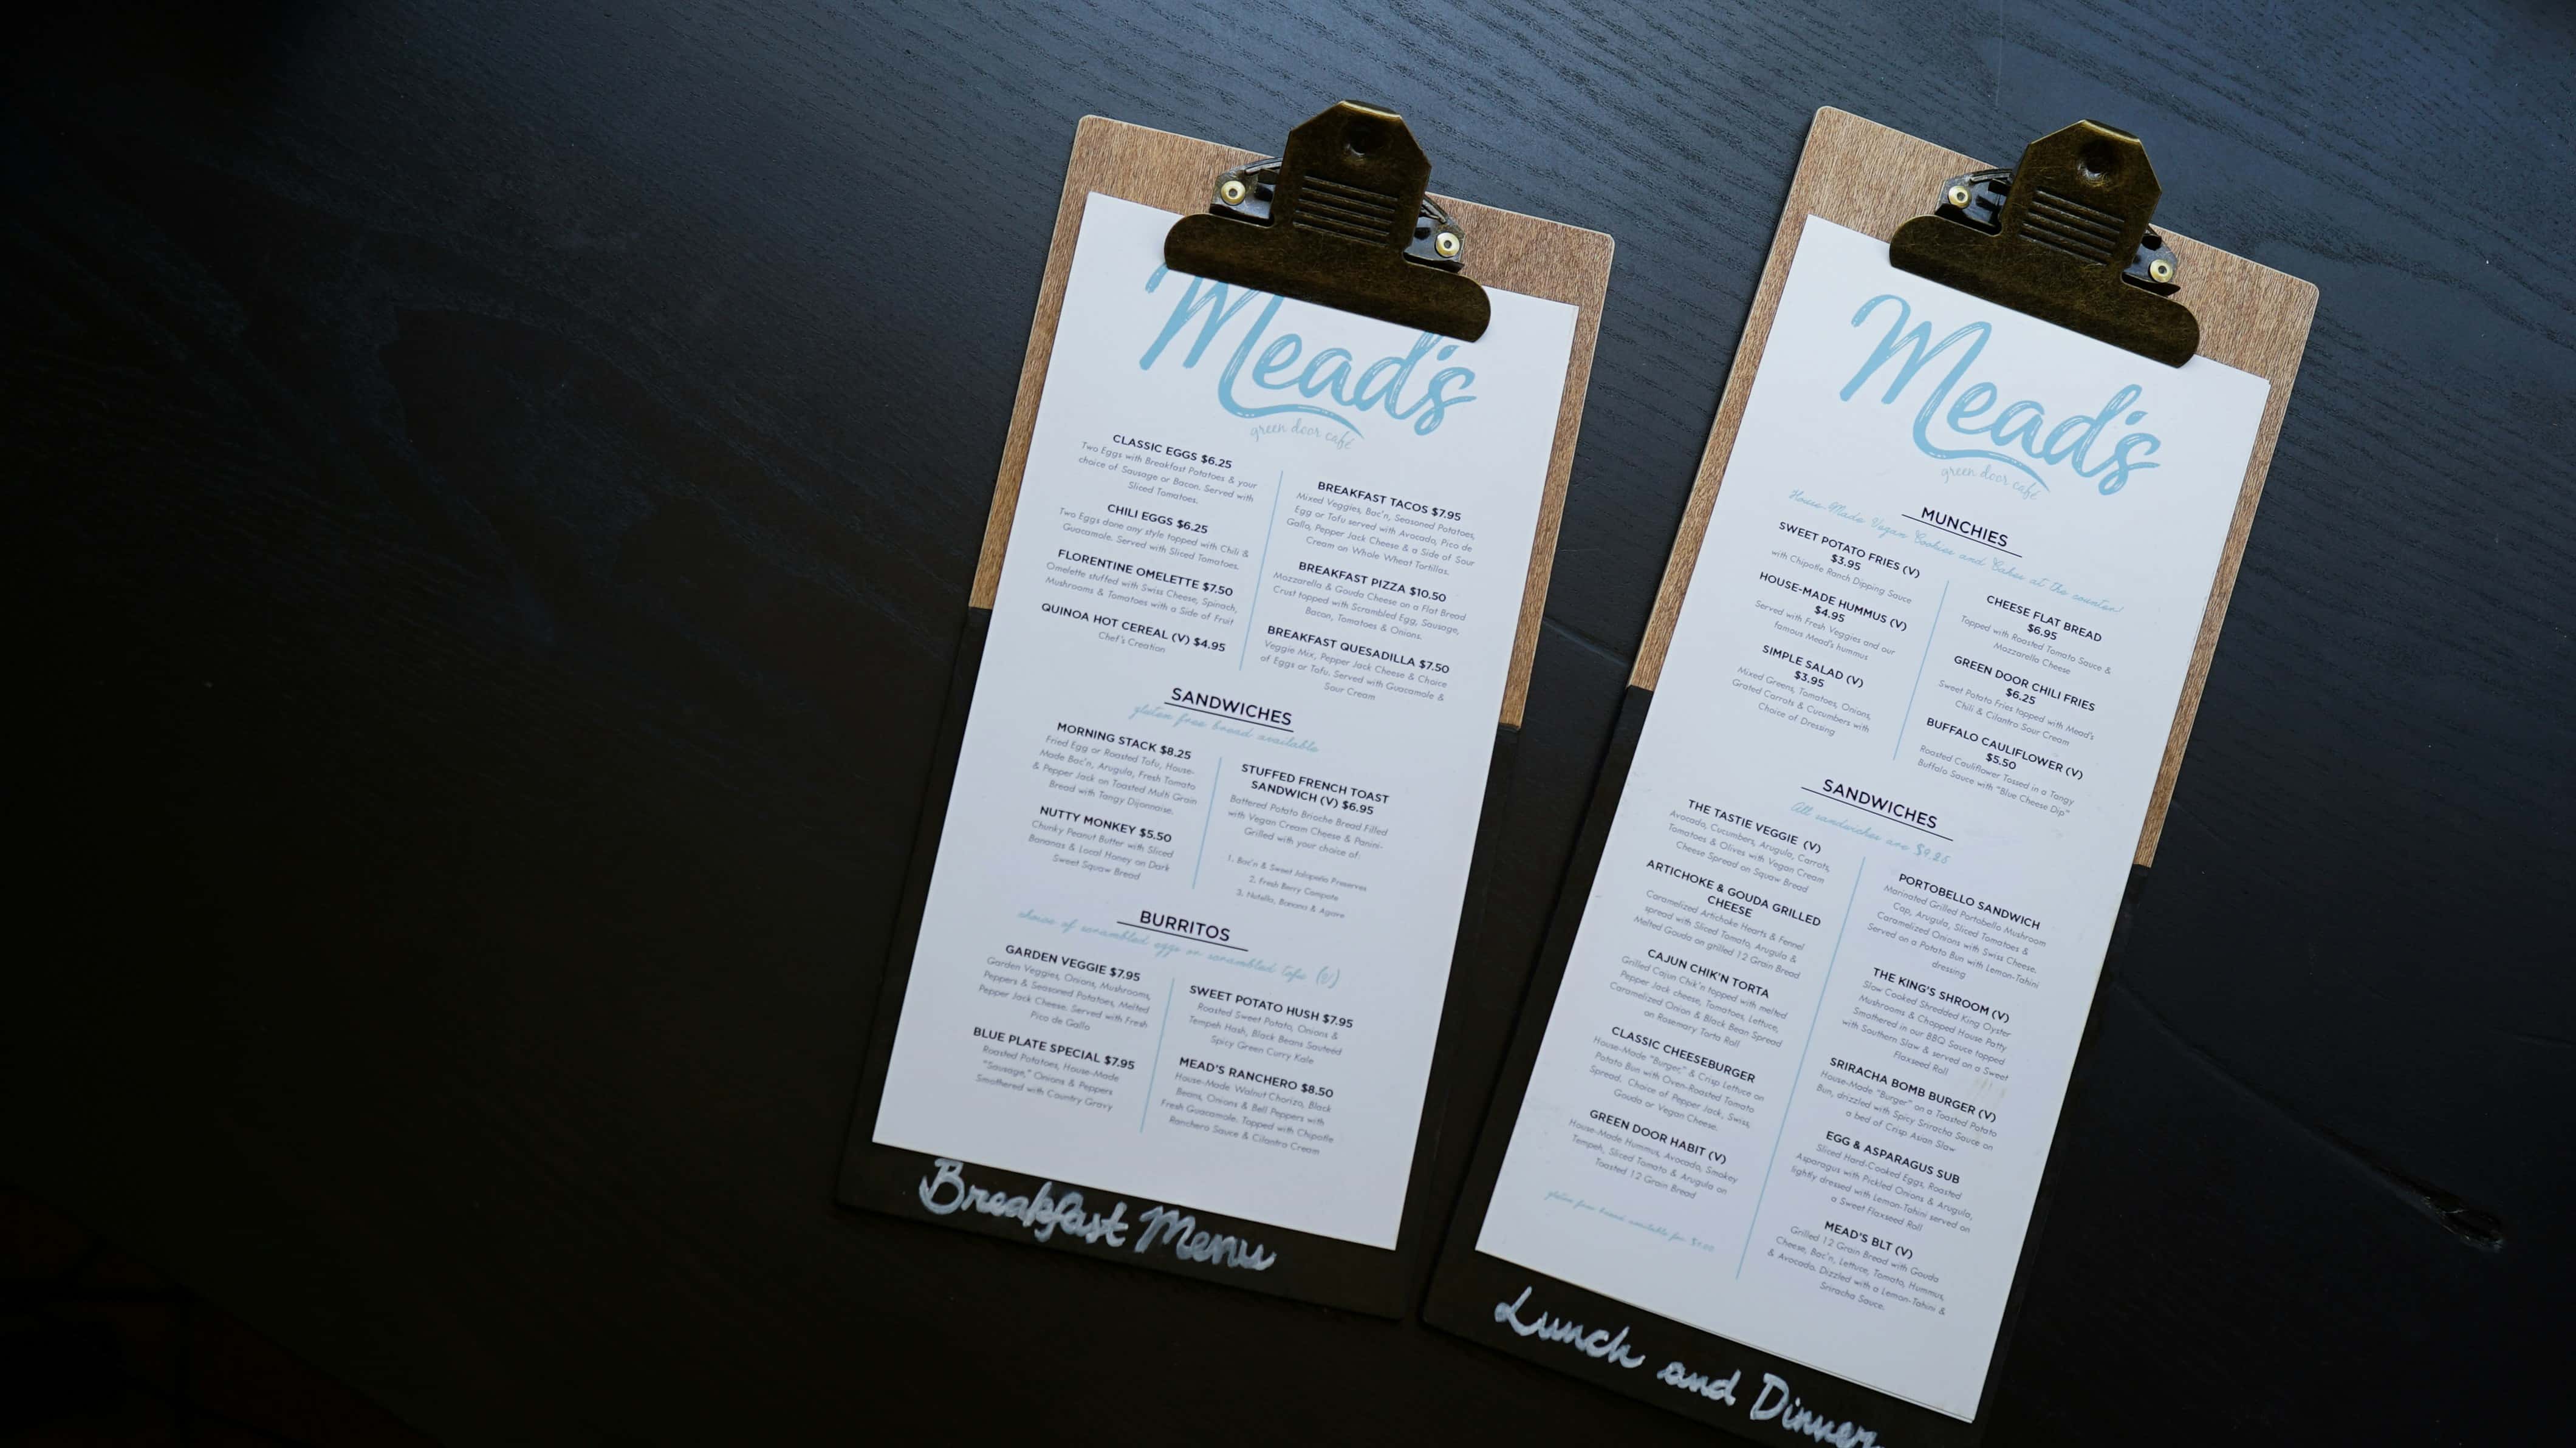 Mead's
green door café
CLASSIC EGGS $6.25
Two Eggs with Breakfast Potatoes & your
choice of Sausage or Bacon. Served with
Sliced Tomatoes.
CHILI EGGS $6.25
Two Eggs done any style topped with Chili &
Guacamole. Served with Sliced Tomatoes.
FLORENTINE OMELETTE $7.50
Omelette stuffed with Swiss Cheese, Spinach,
Mushrooms & Tomatoes with a Side of Fruit
QUINOA HOT CEREAL (V) $4.95
Chef's Creation
BREAKFAST TACOS $7.95
Mixed Veggies, Bac'n, Seasoned Potatoes,
Egg or Tofu served with Avocado, Pico de
Gallo, Pepper Jack Cheese & a Side of Sour
Cream on Whole Wheat Tortillas.
BREAKFAST PIZZA $10.50
Mozzarella & Gouda Cheese on a Flat Bread
Crust topped with Scrambled Egg, Sausage,
Bacon, Tomatoes & Onions.
BREAKFAST QUESADILLA $7.50
Veggie Mix, Pepper Jack Cheese & Choice
of Eggs or Tofu. Served with Guacamole &
Sour Cream
SANDWICHES
gluten free bread available
MORNING STACK $8.25
Fried Egg or Roasted Tofu, House-
Made Bac'n, Arugula, Fresh Tomato
& Pepper Jack on Toasted Multi Grain
Bread with Tangy Dijonnaise.
NUTTY MONKEY $5.50
Chunky Peanut Butter with Sliced
Bananas & Local Honey on Dark
Sweet Squaw Bread
STUFFED FRENCH TOAST
SANDWICH (V) $6.95
Battered Potato Brioche Bread Filled
with Vegan Cream Cheese & Panini-
Grilled with your choice of:
1. Bac'n & Sweet Jalapeño Preserves
2. Fresh Berry Compote
3. Nutella, Banana & Agave
BURRITOS
choice of scrambled eggs or scrambled tofu (V)
GARDEN VEGGIE $7.95
Garden Veggies, Onions, Mushrooms,
Peppers & Seasoned Potatoes, Melted
Pepper Jack Cheese. Served with Fresh
Pico de Gallo
BLUE PLATE SPECIAL $7.95
Roasted Potatoes, House-Made
"Sausage," Onions & Peppers
Smothered with Country Gravy
SWEET POTATO HUSH $7.95
Roasted Sweet Potato, Onions &
Tempeh Hash, Black Beans Sautéed
Spicy Green Curry Kale
MEAD'S RANCHERO $8.50
House-Made Walnut Chorizo, Black
Beans, Onions & Bell Peppers with
Fresh Guacamole. Topped with Chipotle
Ranchero Sauce & Cilantro Cream
Breakfast Menu
Mead's
green door café
MUNCHIES
House-Made Vegan Cookies and Cakes at the counter!
SWEET POTATO FRIES (V)
$3.95
with Chipotle Ranch Dipping Sauce
HOUSE-MADE HUMMUS (V)
$4.95
Served with Fresh Veggies and our
famous Mead's hummus
SIMPLE SALAD (V)
$3.95
Mixed Greens, Tomatoes, Onions,
Grated Carrots & Cucumbers with
Choice of Dressing
CHEESE FLAT BREAD
$6.95
Topped with Roasted Tomato Sauce &
Mozzarella Cheese
GREEN DOOR CHILI FRIES
$6.25
Sweet Potato Fries topped with Mead's
Chili & Cilantro Sour Cream
BUFFALO CAULIFLOWER (V)
$5.50
Roasted Cauliflower Tossed in a Tangy
Buffalo Sauce with "Blue Cheese Dip"
SANDWICHES
All sandwiches are $9.25
THE TASTIE VEGGIE (V)
Avocado, Cucumbers, Arugula, Carrots,
Tomatoes & Olives with Vegan Cream
Cheese Spread on Squaw Bread
ARTICHOKE & GOUDA GRILLED
CHEESE
Caramelized Artichoke Hearts & Fennel
spread with Sliced Tomato, Arugula &
Melted Gouda on grilled 12 Grain Bread
CAJUN CHIK'N TORTA
Grilled Cajun Chik'n topped with melted
Pepper Jack cheese, Tomatoes, Lettuce,
Caramelized Onion & Black Bean Spread
on Rosemary Torta Roll
CLASSIC CHEESEBURGER
House-Made "Burger," & Crisp Lettuce on
Potato Bun with Oven-Roasted Tomato
Spread. Choice of Pepper Jack, Swiss,
Gouda or Vegan Cheese.
GREEN DOOR HABIT (V)
House-Made Hummus, Avocado, Smokey
Tempeh, Sliced Tomato & Arugula on
Toasted 12 Grain Bread
gluten free bread available for
PORTOBELLO SANDWICH
Marinated Grilled Portobello Mushroom
Cap, Arugula, Sliced Tomatoes &
Caramelized Onions with Swiss Cheese.
Served on a Potato Bun with Lemon-Tahini
dressing
THE KING'S SHROOM (V)
Slow Cooked Shredded King Oyster
Mushrooms & Chopped House Patty
Smothered in our BBQ Sauce topped
with Southern Slaw & served on a Sweet
Flaxseed Roll
SRIRACHA BOMB BURGER (V)
House-Made "Burger" on a Toasted Potato
Bun, drizzled with Spicy Sriracha Sauce on
a bed of Crisp Asian Slaw
EGG & ASPARAGUS SUB
Sliced Hard-Cooked Eggs, Roasted
Asparagus with Pickled Onions & Arugula,
lightly dressed with Lemon-Tahini served on
a Sweet Flaxseed Roll
MEAD'S BLT (V)
Grilled 12 Grain Bread with Gouda
Cheese, Bac'n, Lettuce, Tomato, Hummus,
& Avocado. Dizzled with a Lemon-Tahini &
Sriracha Sauce.
Lunch and Dinner